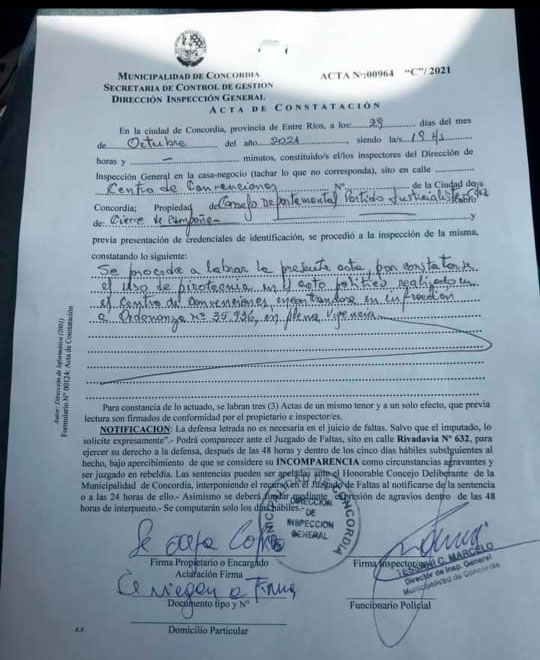 MUNICIPALIDAD DE CONCORDIA
ACTA Nº:00964 "C"/2021
SECRETARIA DE CONTROL DE GESTION
DIRECCIÓN INSPECCIÓN GENERAL
ACTA DE CONSTATACIÓN
En la ciudad de Concordia, provincia de Entre Ríos, a los: 29 días del mes
de Octubre del año 2021, siendo la/s 19 hs
horas y — minutos, constituido/s el/los inspectores del Dirección de
Inspección General en la casa-negocio (tachar lo que no corresponda), sito en calle
Centro de Convenciones Nº de la Ciudad de
Concordia; Propiedad de Consejo Departamental Partido Justicialista
de Cierre de Campaña y
previa presentación de credenciales de identificación, se procedió a la inspección de la misma,
constatando lo siguiente:
Se procede a labrar la presente acta, por constatarse
el uso de pirotecnia en el acto politico realizado en
el Centro de Convenciones, encontrandose en infracción
a Ordenanza Nº 35.936, en plena vigencia
Para constancia de lo actuado, se labran tres (3) Actas de un mismo tenor y a un solo efecto, que previa
lectura son firmados de conformidad por el propietario e inspector/es.
NOTIFICACION: La defensa letrada no es necesaria en el juicio de faltas. Salvo que el imputado, lo
solicite expresamente".- Podrá comparecer ante el Juzgado de Faltas, sito en calle Rivadavia Nº 632, para
ejercer su derecho a la defensa, después de las 48 horas y dentro de los cinco días hábiles substguientes al
hecho, bajo apercibimiento de que se considere su INCOMPARENCIA como circunstancias agravantes y
ser juzgado en rebeldía. Las sentencias pueden ser apeladas ante el Honorable Concejo Deliberante de la
Municipalidad de Concordia, interponiendo el recurso en el Juzgado de Faltas al notificarse de la sentencia
o a las 24 horas de ello.- Asimismo se deberá fundar mediante expresión de agravios dentro de las 48
horas de interpuesto.- Se computarán solo los días hábiles.
DIRECCION
DE
INSPECCION
GENERAL
CONCORDIA
Se deja Copia
Firma Propietario o Encargado
Firma Inspector/es
Aclaración Firma
TESSANI C. MARCELO
Director de Insp. General
Municipalidad de Concordia
Se niegan a Firmar
Documento tipo y Nº
Funcionario Policial
Domicilio Particular
Autor: Dirección de Informática (2001)
Formulario Nº 00124: Acta de Constatación